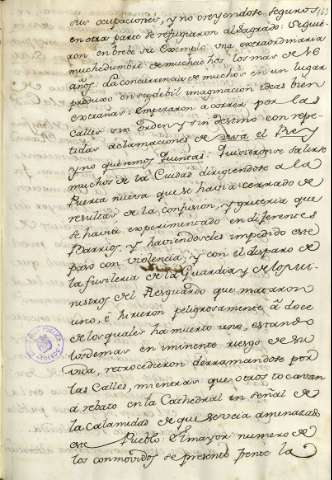 sus ocupaciones, y no creyendose seguros
en otra parte se refugiaron al Sagrado. Siguie
ron en brebe su Exemplo una extraordinaria
muchedumbre de muchachos los mas de 16
años. La concurrencia de muchos en un lugar
produxo en su debil imaginacion ideas bien
extrañas. Empezaron a correr por las
Calles sin orden, y sin destino con repe-
tidas aclamaciones de viva el Rey
y no queremos Quintas. Quisieronse salirse
muchos de la Ciudad dirigiendose a la
Puerta nueva que se havia cerrado de
resultas de la confusion, y griteria que
se havia experimentado en diferentes
Barrios, y haviendoseles impedido este
paso con violencia, y con el disparo de
la fusileria de la Guardia, y de los mi-
nistros del Resguardo que mataron
uno, è hirieron peligrosamente à doce
de los quales ha muerto uno, estando
los demas en iminente riesgo de su
vida, retrocedieron derramandose por
las Calles, mientras que otros tocavan
a rebato en la Cathedral en señal de
la calamidad de que se veia amenazado
este Pueblo. El mayor numero de
los conmovidos se presentó frente la